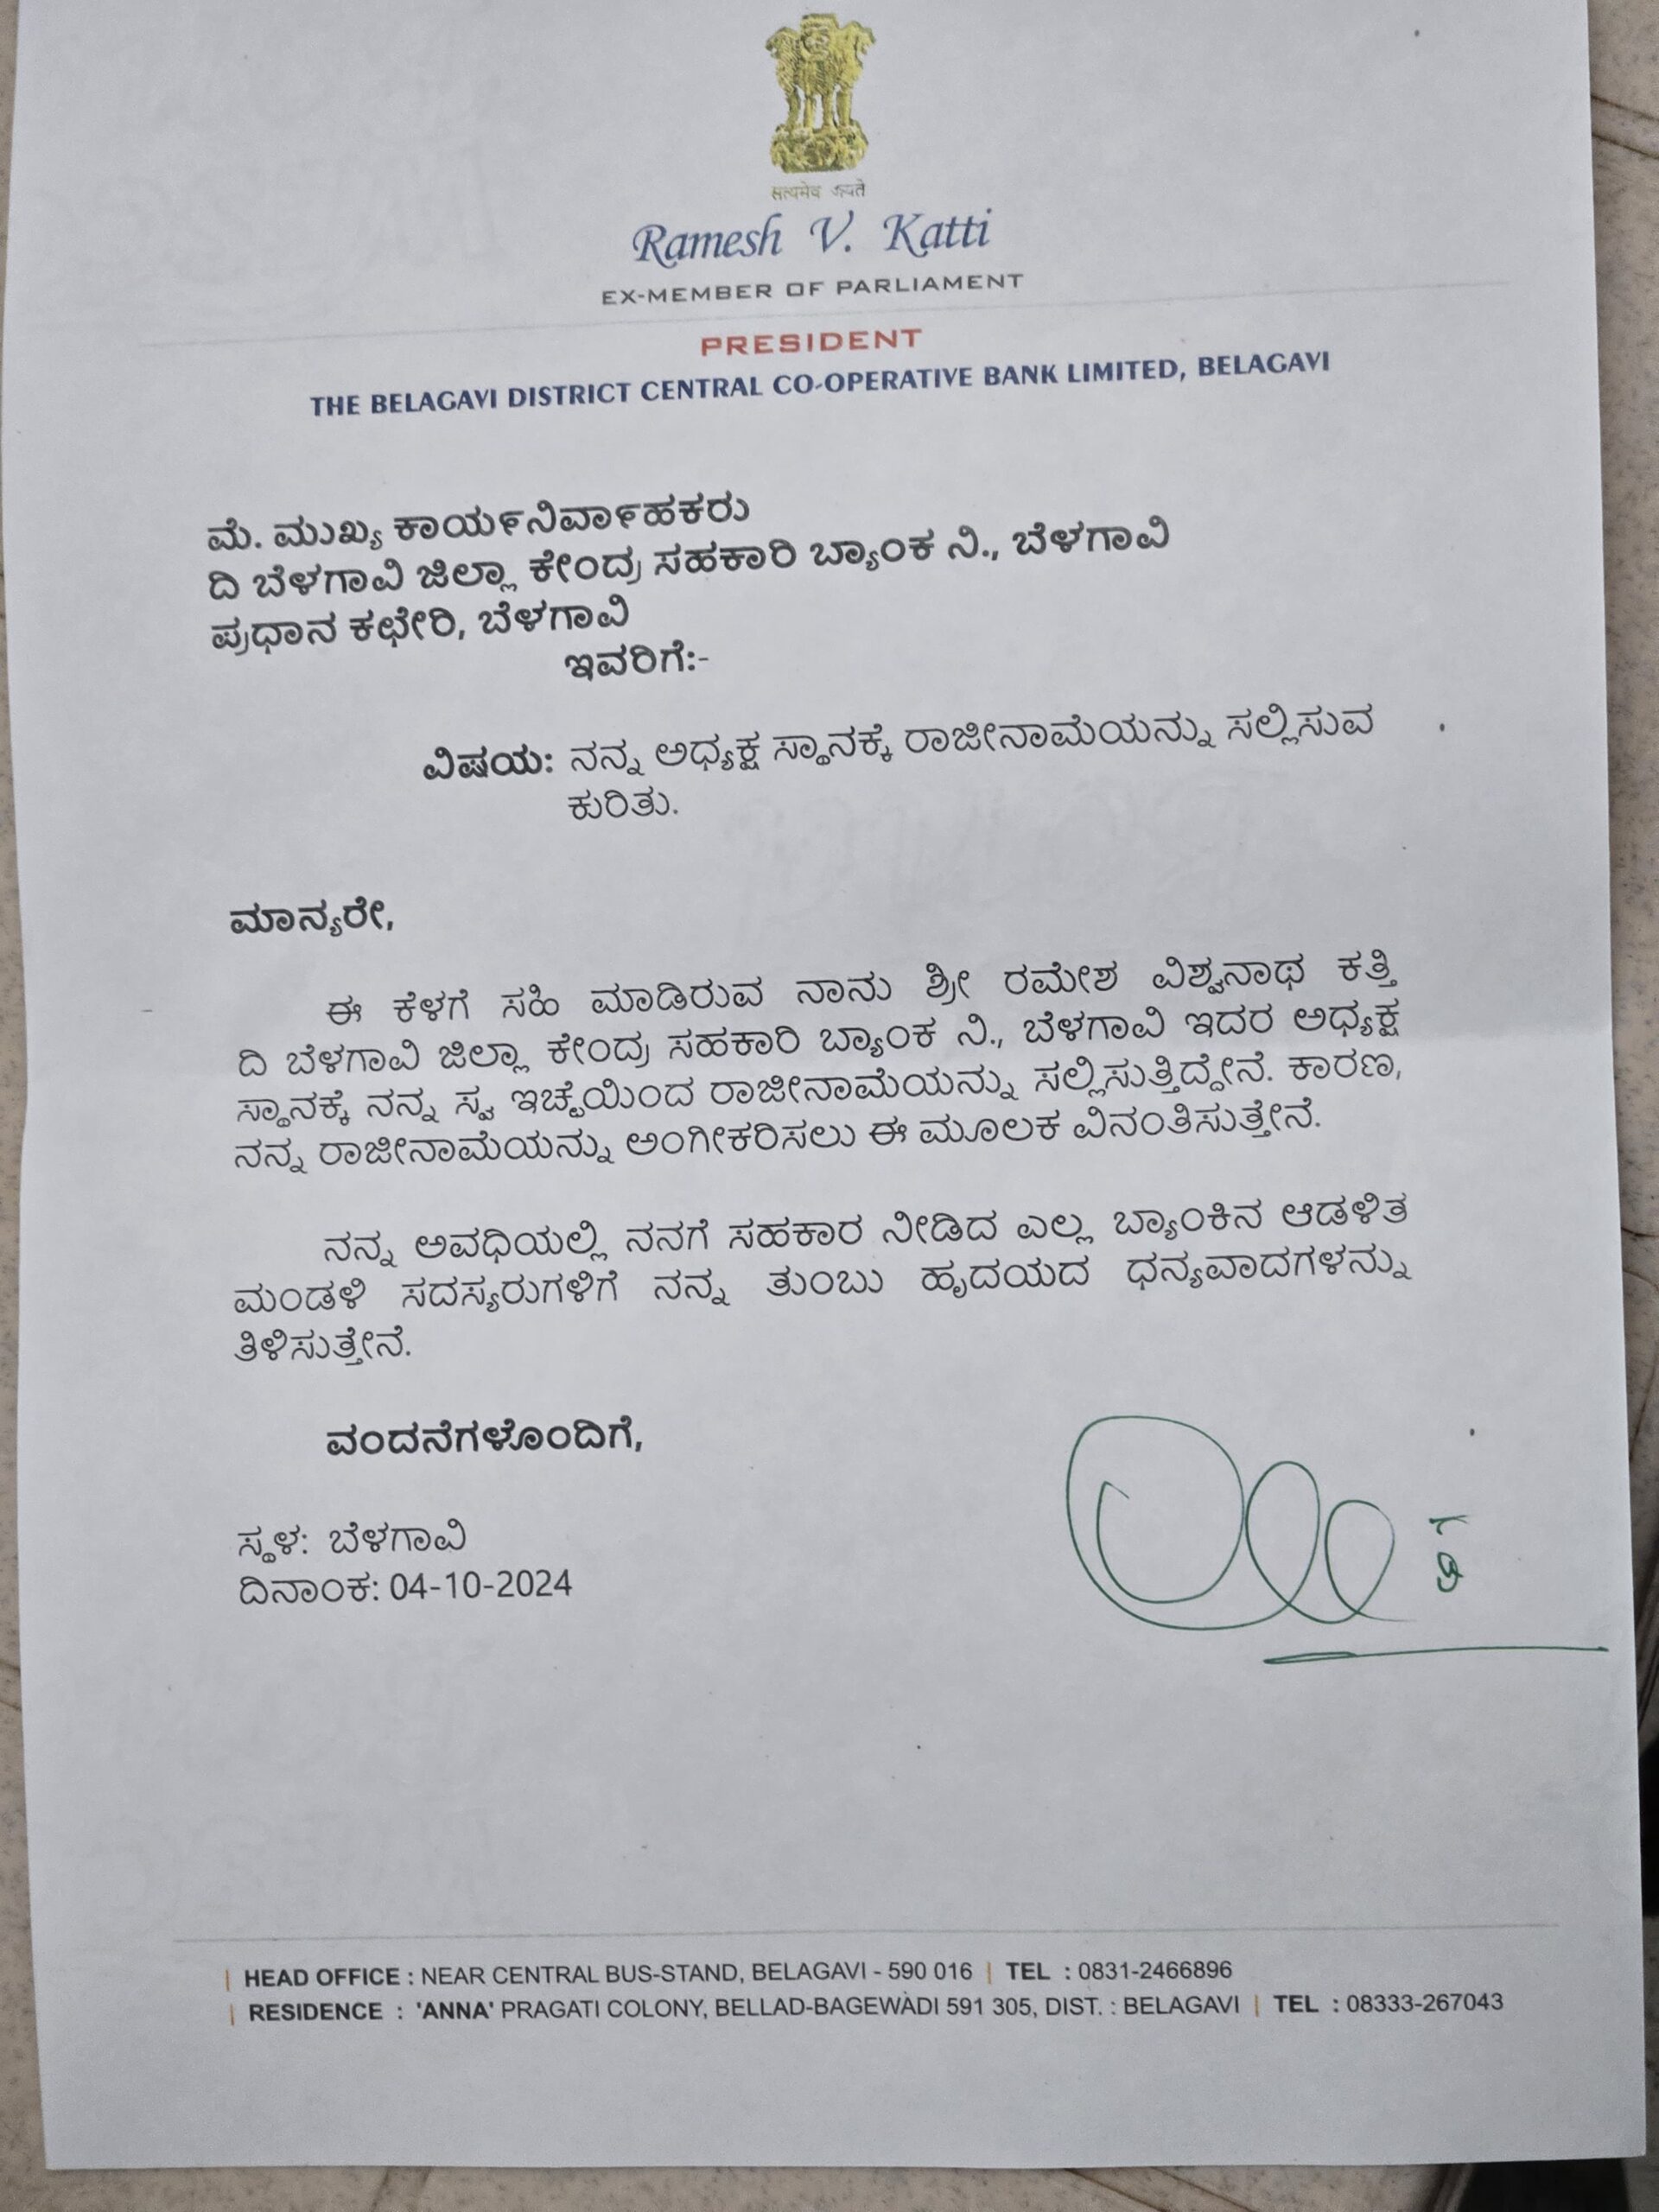 सत्यमेव जयते
Ramesh V. Katti
EX-MEMBER OF PARLIAMENT
PRESIDENT
THE BELAGAVI DISTRICT CENTRAL CO-OPERATIVE BANK LIMITED, BELAGAVI
ಮೆ. ಮುಖ್ಯ ಕಾರ್ಯನಿರ್ವಾಹಕರು
ದಿ ಬೆಳಗಾವಿ ಜಿಲ್ಲಾ ಕೇಂದ್ರ ಸಹಕಾರಿ ಬ್ಯಾಂಕ ನಿ., ಬೆಳಗಾವಿ
ಪ್ರಧಾನ ಕಛೇರಿ, ಬೆಳಗಾವಿ
ಇವರಿಗೆ:-
ವಿಷಯ: ನನ್ನ ಅಧ್ಯಕ್ಷ ಸ್ಥಾನಕ್ಕೆ ರಾಜೀನಾಮೆಯನ್ನು ಸಲ್ಲಿಸುವ
ಕುರಿತು.
ಮಾನ್ಯರೇ,
ಈ ಕೆಳಗೆ ಸಹಿ ಮಾಡಿರುವ ನಾನು ಶ್ರೀ ರಮೇಶ ವಿಶ್ವನಾಥ ಕತ್ತಿ
ದಿ ಬೆಳಗಾವಿ ಜಿಲ್ಲಾ ಕೇಂದ್ರ ಸಹಕಾರಿ ಬ್ಯಾಂಕ ನಿ., ಬೆಳಗಾವಿ ಇದರ ಅಧ್ಯಕ್ಷ
ಸ್ಥಾನಕ್ಕೆ ನನ್ನ ಸ್ವ ಇಚ್ಛೆಯಿಂದ ರಾಜೀನಾಮೆಯನ್ನು ಸಲ್ಲಿಸುತ್ತಿದ್ದೇನೆ. ಕಾರಣ,
ನನ್ನ ರಾಜೀನಾಮೆಯನ್ನು ಅಂಗೀಕರಿಸಲು ಈ ಮೂಲಕ ವಿನಂತಿಸುತ್ತೇನೆ.
ನನ್ನ ಅವಧಿಯಲ್ಲಿ ನನಗೆ ಸಹಕಾರ ನೀಡಿದ ಎಲ್ಲ ಬ್ಯಾಂಕಿನ ಆಡಳಿತ
ಮಂಡಳಿ ಸದಸ್ಯರುಗಳಿಗೆ ನನ್ನ ತುಂಬು ಹೃದಯದ ಧನ್ಯವಾದಗಳನ್ನು
ತಿಳಿಸುತ್ತೇನೆ.
ವಂದನೆಗಳೊಂದಿಗೆ,
ಸ್ಥಳ: ಬೆಳಗಾವಿ
ದಿನಾಂಕ: 04-10-2024
| HEAD OFFICE : NEAR CENTRAL BUS-STAND, BELAGAVI - 590 016 | TEL : 0831-2466896
| RESIDENCE : 'ANNA' PRAGATI COLONY, BELLAD-BAGEWADI 591 305, DIST. : BELAGAVI | TEL : 08333-267043